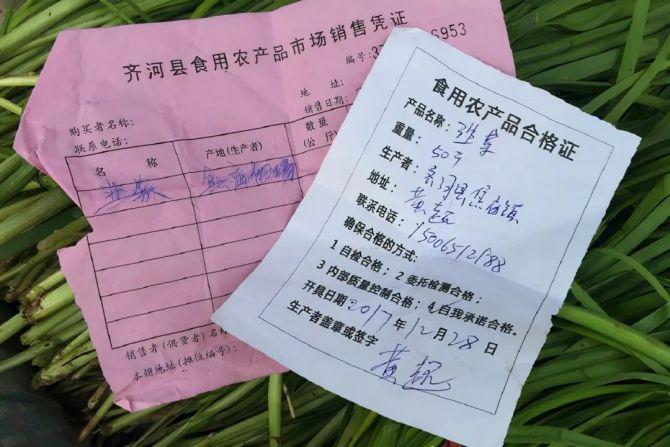 齐河县食用农产品市场销售凭证
编号:37 6953
地 址:
销售日期:
购买者名称:
联系电话:
名 称
产地(生产者)
数量
(公斤)
韭菜
销售者(供货者)名称
本销地址(摊位编号):
食用农产品合格证
产品名称:韭
重量:50斤
生产者:
齐河县焦庙镇
地址:黄
联系电话:15006512188
确保合格的方式:
1 自检合格; 2 委托检测合格;
3 内部质量控制合格; 4 自我承诺合格。
开具日期:2017年12月28日
生产者盖章或签字
黄